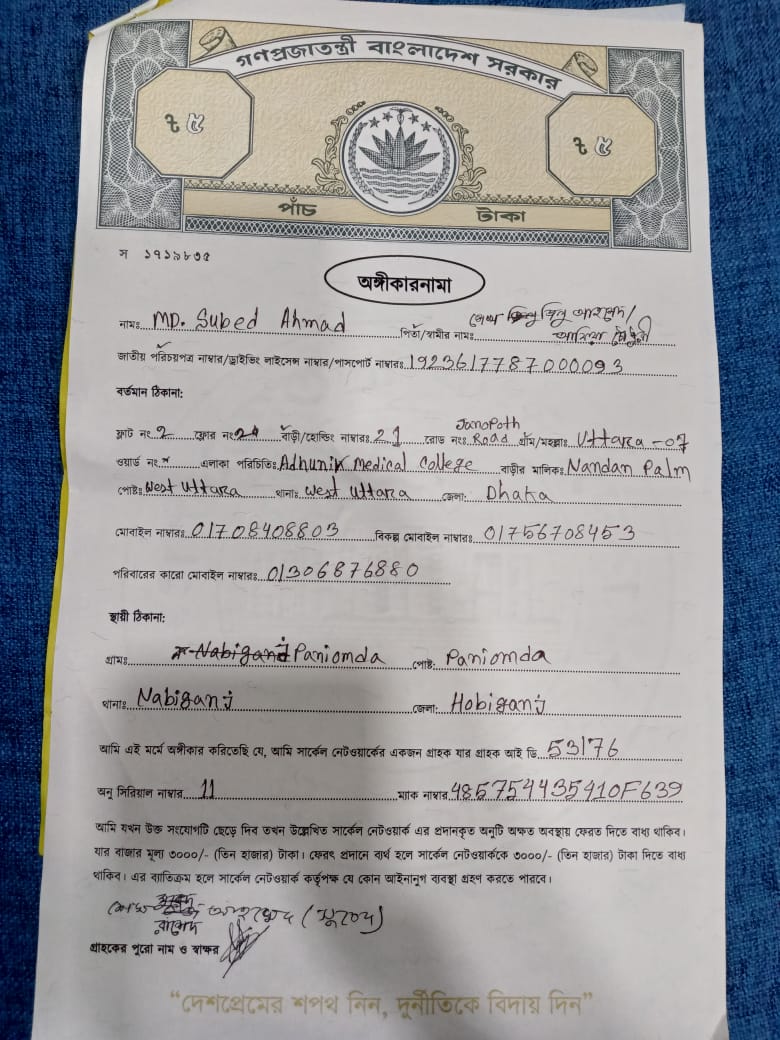 গণপ্রজাতন্ত্রী বাংলাদেশ সরকার
৳ ৫ ৳ ৫
পাঁচ টাকা
স ১৭১৯৮৩৫
অঙ্গীকারনামা
নামঃ MD. Subed Ahmad পিতা/স্বামীর নামঃ
জাতীয় পরিচয়পত্র নাম্বার/ড্রাইভিং লাইসেন্স নাম্বার/পাসপোর্ট নাম্বারঃ 19236177870000093
বর্তমান ঠিকানা:
ফ্লাট নং 2 ফ্লোর নং বাড়ী/হোল্ডিং নাম্বারঃ 21 রোড নংঃ Janopoth Road গ্রাম/মহল্লাঃ Uttara -07
ওয়ার্ড নং এলাকা পরিচিতিঃ Adhunik Medical College বাড়ীর মালিকঃ Nandan Palm
পোষ্টঃ West Uttara থানাঃ West Uttara জেলা: Dhaka
মোবাইল নাম্বারঃ 01708408803 বিকল্প মোবাইল নাম্বারঃ 01756708453
পরিবারের কারো মোবাইল নাম্বারঃ 01306876880
স্থায়ী ঠিকানা:
গ্রামঃ Paniomda পোষ্ট: Paniomda
থানাঃ Nabiganj জেলা: Hobiganj
আমি এই মর্মে অঙ্গীকার করিতেছি যে, আমি সার্কেল নেটওয়ার্কের একজন গ্রাহক যার গ্রাহক আই ডি 53176
অনু সিরিয়াল নাম্বার 11 ম্যাক নাম্বার 485754435410F639
আমি যখন উক্ত সংযোগটি ছেড়ে দিব তখন উল্লেখিত সার্কেল নেটওয়ার্ক এর প্রদানকৃত অনুটি অক্ষত অবস্থায় ফেরত দিতে বাধ্য থাকিব।
যার বাজার মূল্য ৩০০০/- (তিন হাজার) টাকা। ফেরৎ প্রদানে ব্যর্থ হলে সার্কেল নেটওয়ার্ককে ৩০০০/- (তিন হাজার) টাকা দিতে বাধ্য
থাকিব। এর ব্যতিক্রম হলে সার্কেল নেটওয়ার্ক কর্তৃপক্ষ যে কোন আইনানুগ ব্যবস্থা গ্রহণ করতে পারবে।
গ্রাহকের পুরো নাম ও স্বাক্ষর
“দেশপ্রেমের শপথ নিন, দুর্নীতিকে বিদায় দিন”